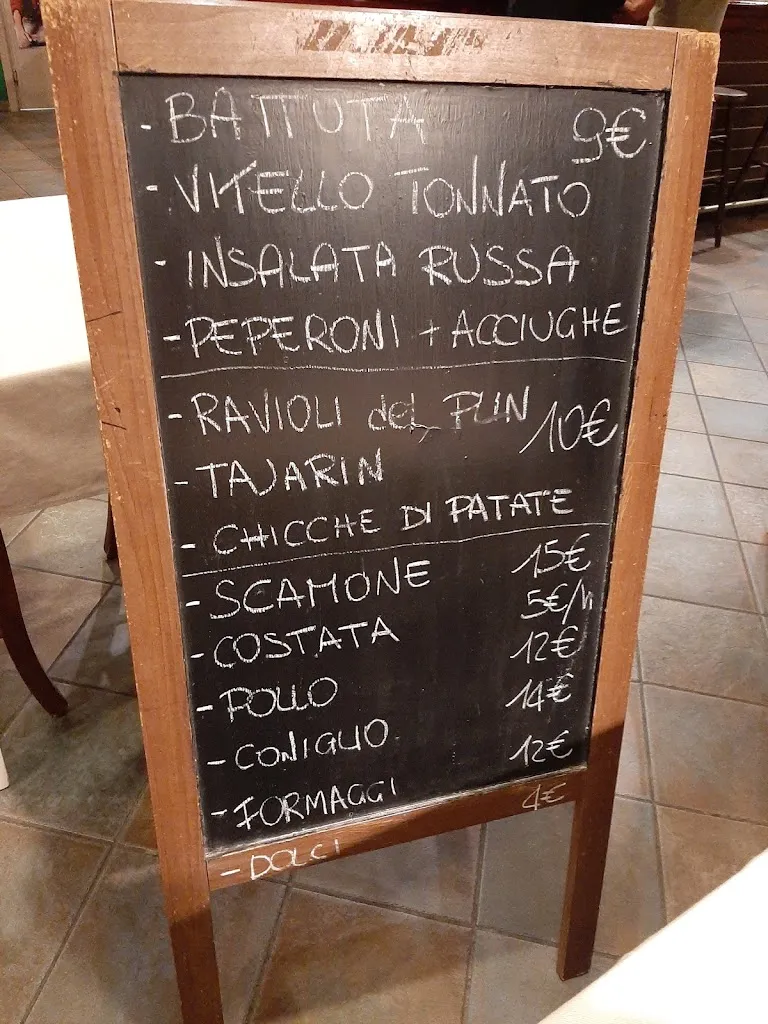 - BATTUTA 9€
- VITELLO TONNATO
- INSALATA RUSSA
- PEPERONI + ACCIUGHE
- RAVIOLI del PLIN 10€
- TAJARIN
- CHICCHE DI PATATE
- SCAMONE 15€
- COSTATA 5€/h
- POLLO 12€
- CONIGLIO 14€
- FORMAGGI 12€
- DOLCI 4€